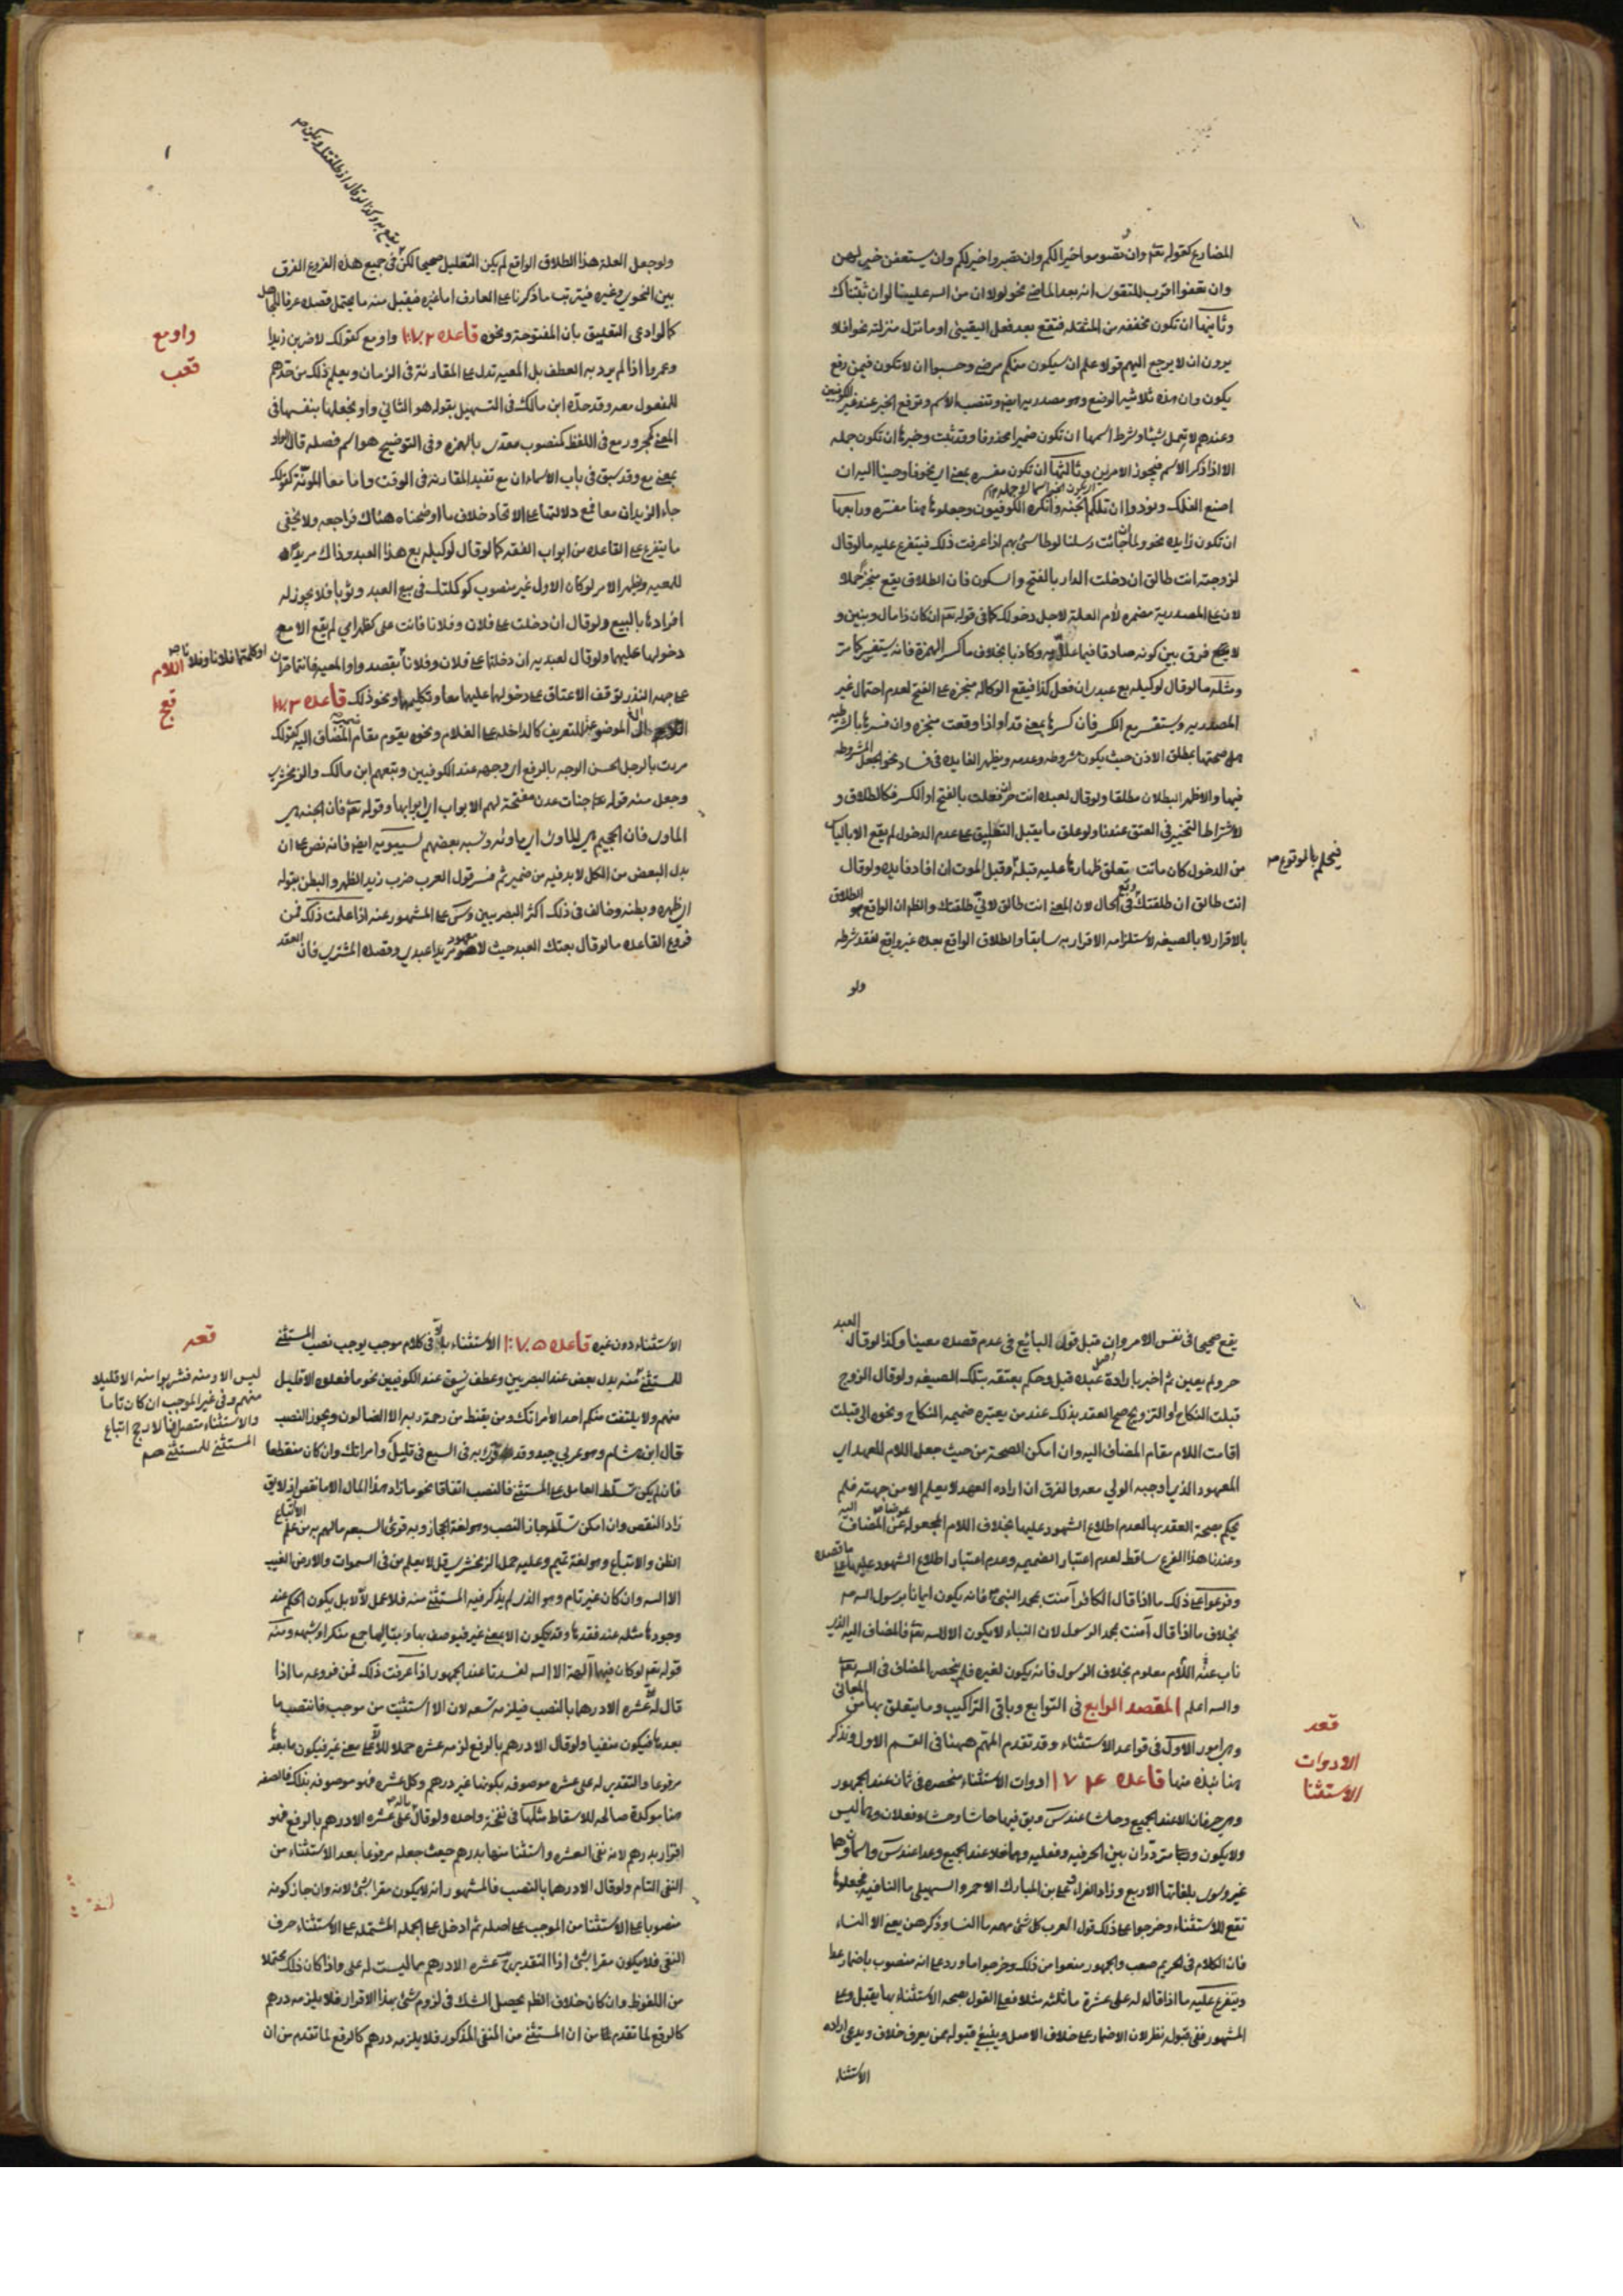 المضارع كقوله تعم وان تصوموا خيرا لكم وان تصبروا خير لكم وان يستعففن خير لهن
وان تعفوا اقرب للتقوى انه بعد الماضي نحو لولا ان من الله علينا لولا ان ثبتناك
وثانيها ان تكون مخففه من المثقله فتقع بعد فعل اليقيني او ما نزل منزلته نحو افلا
يرون ان لا يرجع اليهم قولا علم ان سيكون منكم مرضى وحسبوا ان لا تكون فيمن رفع
يكون وان هذه ثلاثيه الوضع وهو مصدريه ايضا وتنصب الاسم وترفع الخبر عند غير الكوفيين
وعندهم لا تعمل شيئا وشرط اسمها ان تكون ضميرا محذوفا وقد ثبت وخبرها ان تكون جمله
الا اذا ذكر الاسم فيجوز الامرين وثالثها ان تكون مفسره بمعنى اي نحو فاوحينا اليه ان
اصنع الفلك ونودوا ان تلكم الجنه وانكره الكوفيون وجعلوها هنا مفسره ورابعها
ان تكون زايده نحو ولما ان جائت رسلنا لوطا سئ بهم اذا عرفت ذلك فيتفرع عليه ما لو قال
لزوجته انت طالق ان دخلت الدار بالفتح والسكون فان الطلاق يقع منجزا حملا
لان على المصدرية مضمره لام العلة لاجل دخولك كما في قوله تعم ان كان ذا مال وبنين و
لا فرق بين كونه صادقا فيما علل به وكاذبا بخلاف ما كسر الهمزة فانه يستفسر كما مر
ومثله ما لو قال لوكيله بع عبدي ان فعل كذا فيقع الوكاله منجزه على الفتح لعدم احتمال غير
المصدريه ويستفسر مع الكسر فان كسرها بمعنى قد او اذا وقعت منجزه وان فسرها بالشرطيه
فيها والاظهر البطلان مطلقا ولو قال لعبده انت حر ان فعلت بالفتح او الكسر فكالطلاق و
لاشتراط التنجيز في العتق عندنا ولو علق ما يقبل التعليق على عدم الدخول لم يقع الا بالياس
من الدخول كان ماتت بتعلق ظهارها عليه قبله وقبل الموت ان افاد فايده ولو قال
فيحكم بالوقوع صح
انت طالق ان طلقتك وقع في الحال لان المعنى انت طالق لاني طلقتك والظم ان الواقع هو الطلاق
بالاقرار لا بالصيغه لاستلزامه الاقرار به سابقا والطلاق الواقع بعده غير واقع لفقد شرطه
ولو
ولو جعل العلة هذا الطلاق الواقع لم يكن التعليل صحيحا لكن في جميع هذه الفروع الفرق
بين النحوي وغيره فيترتب ما ذكرنا على العارف اما غيره فيقبل منه ما يحتمل قصده عرفا للجاهل
كما لو ادعى التعليق بان المفتوحة ونحوه قاعده ١٧٢ واو مع كقولك لاضربن زيدا
واو مع
قعب
وعمروا اذا لم يرد به العطف بل المعيه تدل على المقارنة في الزمان ويعلم ذلك من حدهم
للمفعول معه وقد حده ابن مالك في التسهيل بقوله هو الثاني واو يجعلها بنفسها في
المعنى كمجرور مع في اللفظ كمنصوب معدى بالهمزه وفي التوضيح هو اسم فضله تال لواو
بمعنى مع وقد سبق في باب الاسماء ان مع تفيد المقارنه في الوقت واما معا المنونة كقولك
جاء الزيدان معا فمع دلالتها على الاتحاد خلاف ما اوضحناه هناك فراجعه ولا يخفى
ما يتفرع على القاعده من ابواب الفقه كما لو قال لوكيله بع هذا العبد وذاك مريدا
للمعيه ويظهر الامر لو كان الاول غير منصوب كوكلتك في بيع العبد وثوبا فلا يجوز له
افرادها بالبيع ولو قال ان دخلت على فلان وفلانا فانت على كظهر امي لم يقع الا مع
دخولها عليهما ولو قال لعبديه ان دخلتما على فلان وفلانا بقصد واو المعيه فانتما حران
او كلمتما فلانا وفلانا صح
اللام
قع
على جهه النذر توقف الاعتاق على دخولهما عليهما معا وتكليمهما ونحو ذلك قاعده ١٧٣
ال الموضوعه للتعريف كالداخله على الغلام ونحوه يقوم مقام المضاف اليه كقولك
مررت بالرجل الحسن الوجه بالرفع اي وجهه عند الكوفيين وتبعهم ابن مالك والزمخشري
وجعل منه قوله تعم جنات عدن مفتحة لهم الابواب اي ابوابها وقوله تعم فان الجنه هي
الماوى فان الجحيم هي الماوى اي ماواه ونسبه بعضهم لسيبويه ايضا فانه نص على ان
بدل البعض من الكل لابد فيه من ضمير ثم فسر قول العرب ضرب زيد الظهر والبطن بقوله
اي ظهره وبطنه وخالف في ذلك اكثر البصريين وس على المشهور عنه اذا علمت ذلك فمن
فروع القاعده ما لو قال بعتك العبد حيث لا معهود مريدا عبدي وقصده المشتري فان العقد
يقع صحيحا في نفس الامر وان قبل قول البائع في عدم قصده معينا وكذا لو قال العبد
حر ولم يعين ثم اخبر بارادة عبده قبل وحكم بعتقه بتلك الصيغه ولو قال الزوج
قبلت النكاح او التزويج صح العقد بذلك عند من يعتبره ضميمه النكاح ونحوه الى قبلت
اقامت اللام مقام المضاف اليه وان امكن الصحة من حيث جعل اللام للعهد اي
المعهود الذي اوجبه الولي معه والفرق ان اراده العهد لا يعلم الا من جهته فلم
يحكم بصحة العقد بها لعدم اطلاع الشهود عليها بخلاف اللام المجعوله عوضا عن المضاف اليه
وعندنا هذا الفرع ساقط لعدم اعتبار الضميمه وعدم اعتبار اطلاع الشهود على ما قصده
وفرعوا على ذلك ما اذا قال الكافر آمنت بمحمد النبي ص فانه يكون ايمانا برسول الله ص
بخلاف ما اذا قال آمنت بمحمد الرسول لان النباء لا يكون الا لله تعم فالمضاف اليه الذي
ناب عنه اللام معلوم بخلاف الرسول فانه يكون لغيره فلم ينحصر المضاف في الله تعم
والله اعلم المقصد الرابع في التوابع وباقي التراكيب وما يتعلق بها من المعاني
وهي امور الاول في قواعد الاستثناء وقد تقدم المهم ههنا في القسم الاول ونذكر
قعد
الادوات
الاستثنا
هنا نبذه منها قاعده ١٧٤ ادوات الاستثناء منحصره في ثمان عند الجمهور
وهي حرفان الا عند الجميع وحاشا عند س وبق فيها حاشا وحشا وفعلان وهما ليس
ولا يكون ومترددان بين الحرفيه وفعليه وهما خلا عند الجميع وعدا عند س واسمان وهما
غير وسوى بلغاتها الاربع وزاد الفراء وعلي بن المبارك الاحمر والسهيلي ما النافيه فجعلوها
تقع للاستثناء وخرجوا على ذلك قول العرب كل شئ مهه ما النسا وذكرهن يعني الا النساء
فان الكلام في الحريم صعب والجمهور منعوا من ذلك وخرجوا ما ورد على انه منصوب باضمار عدا
ويتفرع عليه ما اذا قال له على عشرة ما ثلثه مثلا فعلى القول بصحه الاستثناء بها يقبل وعلى
المشهور ففي قبوله نظر لان الاضمار على خلاف الاصل وينبغي قبوله ممن يعرف خلاف ويدعى اراده
الاستثناء
الاستثناء دون غيره قاعده ١٧٥ الاستثناء بالا في كلام موجب يوجب نصب المستثنى
قعد
ليس الا ومنه فشربوا منه الا قليلا
منهم وفي غير الموجب ان كان تاما
والاستثناء متصل فالارجح اتباع
المستثنى للمستثنى صح
للمستثنى منه بدل بعض عند البصريين وعطف نسق عند الكوفيين نحو ما فعلوه الا قليل
منهم ولا يلتفت منكم احد الا امراتك ومن يقنط من رحمة ربه الا الضالون ويجوز النصب
قال ابن هشام وهو عربي جيد وقد قرئ به في السبع في قليل وامراتك وان كان منقطعا
فان لم يكن تسلط العامل على المستثنى فالنصب اتفاقا نحو ما زاد هذا المال الا ما نقص اذ لا يق
زاد النقص وان امكن تسلطه جاز النصب وهو لغة الحجاز وبه قرئ السبعه ما لهم به من علم الا اتباع
الظن والاتباع وهو لغة تميم وعليه حمل الزمخشري قل لا يعلم من في السموات والارض الغيب
الا الله وان كان غير تام وهو الذي لم يذكر فيه المستثنى منه فلا عمل لالا بل يكون الحكم عند
وجودها مثله عند فقدها وقد يكون الا بمعنى غير فيوصف بها وبتاليها جمع منكر او شبهه ومنه
قوله تعم لو كان فيهما آلهة الا الله لفسدتا عند الجمهور اذا عرفت ذلك فمن فروعه ما اذا
قال له على عشره الا درهما بالنصب فيلزمه تسعه لان الا استثنيت من موجب فانتصب ما
بعدها فيكون منفيا ولو قال الا درهم بالرفع لزمه عشره حملا للا على معنى غير فيكون ما بعدها
مرفوعا والتقدير له على عشره موصوفه بكونها غير درهم وكل عشره فهو موصوفه بذلك فالصفه
هنا موكدة صالحه للاسقاط مثلها في نفخة واحده ولو قال ماله على عشره الا درهم بالرفع فهو
اقرار بدرهم لانه نفى العشره واستثنا منها بدرهم حيث جعله مرفوعا بعد الاستثناء من
النفي التام ولو قال الا درهما بالنصب فالمشهور انه لا يكون مقرا بشئ لانه وان جاز كونه
منصوبا على الاستثنا من الموجب على اصله ثم ادخل على الجمله المشتمله على الاستثناء حرف
النفي فلا يكون مقرا بشئ اذ التقدير ح عشره الا درهم ما ليست له على واذا كان ذلك محتملا
من اللفوظ وان كان خلاف الظم يحصل الشك في لزوم شئ بهذا الاقرار فلا يلزمه درهم
كالرفع لما تقدم من ان المستثنى من المنفي المذكور فلا يلزمه درهم كالرفع لما تقدم من ان